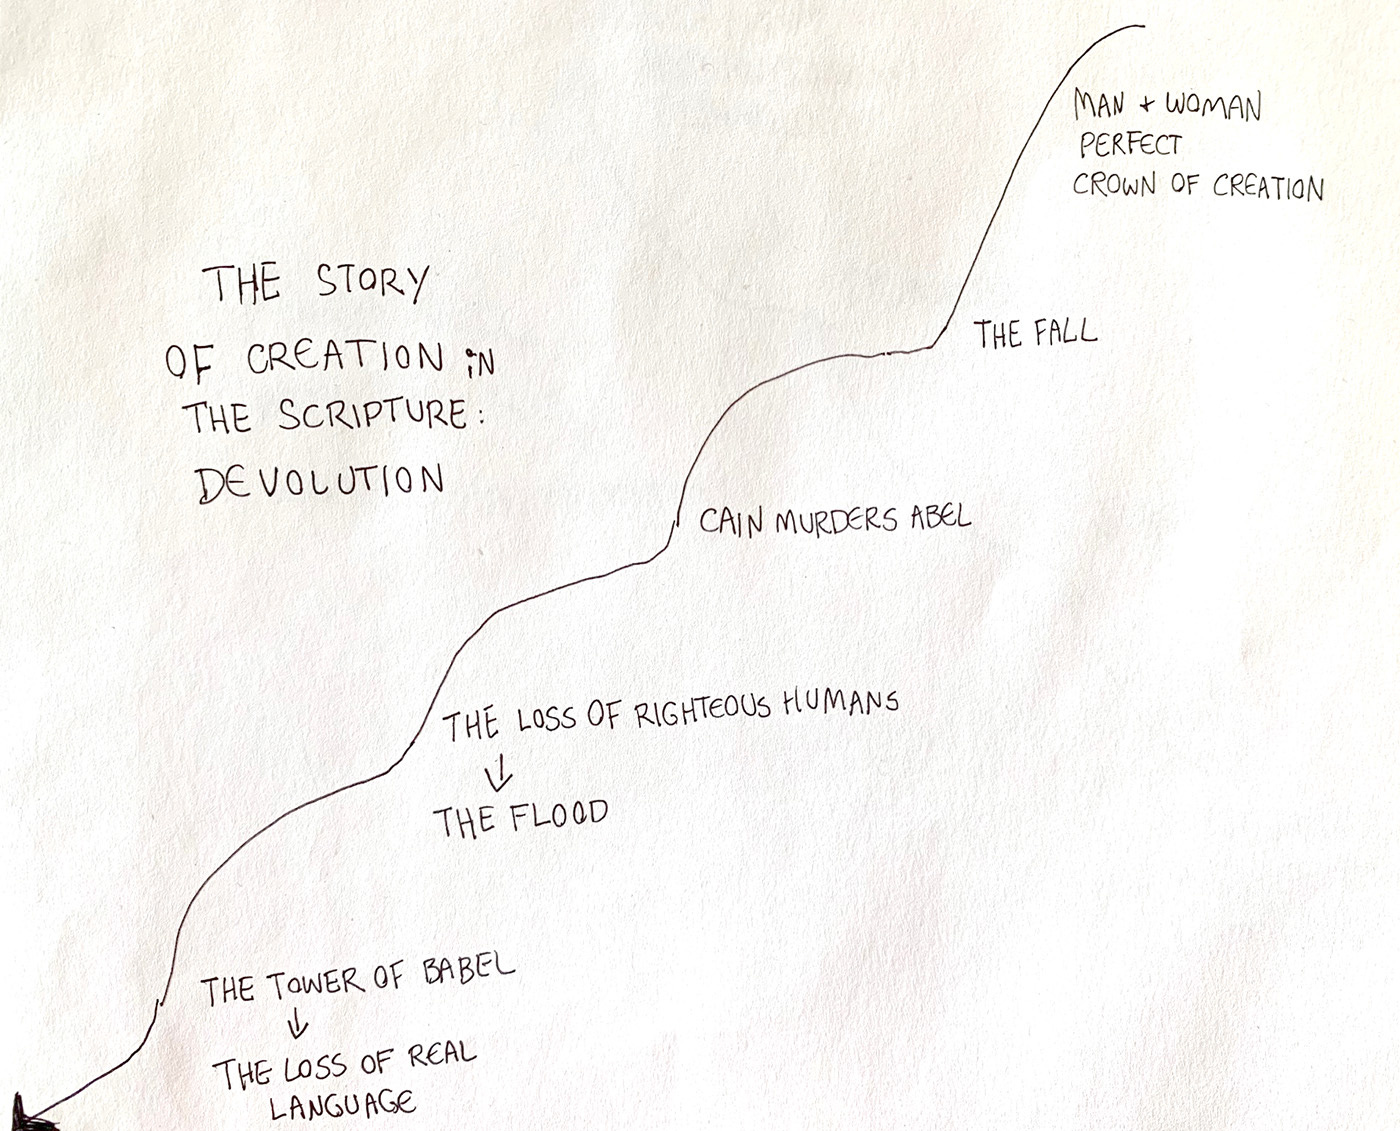 MAN + WOMAN
PERFECT
CROWN OF CREATION
THE STORY
OF CREATION iN
THE SCRIPTURE:
DEVOLUTION
THE FALL
CAIN MURDERS ABEL
THE LOSS OF RIGHTEOUS HUMANS
↓
THE FLOOD
THE TOWER OF BABEL
↓
THE LOSS OF REAL
LANGUAGE